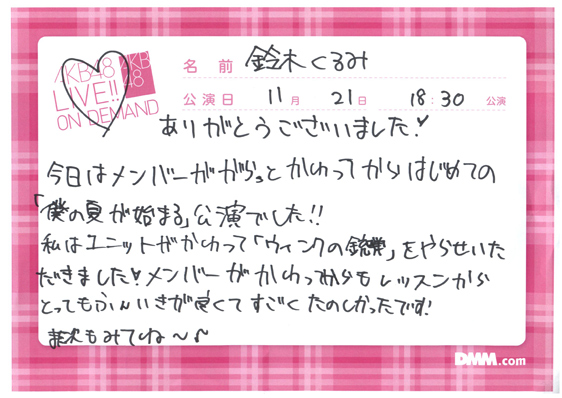 AKB48
LIVE!!
ON DEMAND
AKB
48
名 前 鈴木くるみ
公演日 11月 21日 18:30 公演
ありがとうございました!
今日はメンバーががらっとかわってからはじめての
「僕の夏が始まる」公演でした!!
私はユニットがかわって「ウィンクの銃弾」をやらせいた
だきました!メンバーがかわってからもレッスンから
とってもふんいきが良くてすごくたのしかったです!
次もみてね〜♪
DMM.com